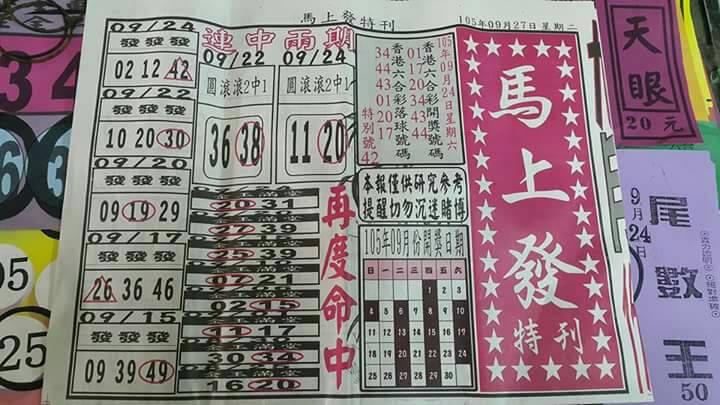 馬上發特刊
105年09月27日 星期二
09/24
發發發
02 12 42
09/22
發發發
10 20 30
09/20
發發發
09 19 29
09/17
發發發
26 36 46
09/15
發發發
09 39 49
連中兩期
09/22
09/24
圓滾滾2中1
圓滾滾2中1
36 38
11 20
20 31
27 39
25 39
07 21
02 15
11 17
30 34
16 20
再度命中
105年09月24日星期六
香港六合彩開獎號碼
香港六合彩落球號碼
特別號
42
本報僅供研究參考
提醒切勿沉迷賭博
105年09月份開獎日期
日 一 二 三 四 五 六
1 2 3
4 5 6 7 8 9 10
11 12 13 14 15 16 17
18 19 20 21 22 23 24
25 26 27 28 29 30
馬上發
特刊
天眼
20元
9月24日
尾數王
50
34
3
05
25